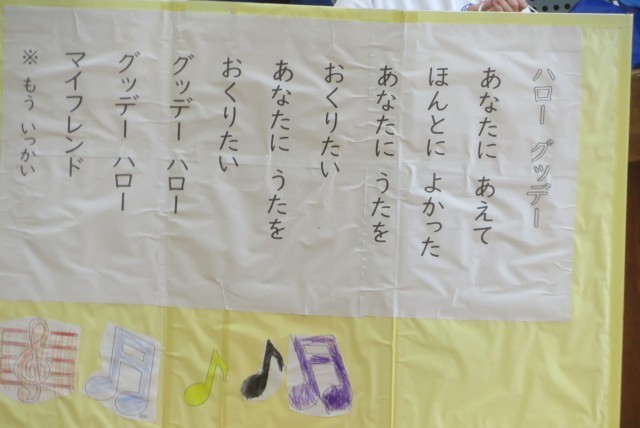 ハロー グッデー
あなたに あえて
ほんとに よかった
あなたに うたを
おくりたい
あなたに うたを
おくりたい
グッデー ハロー
グッデー ハロー
マイフレンド
※ もう いっかい